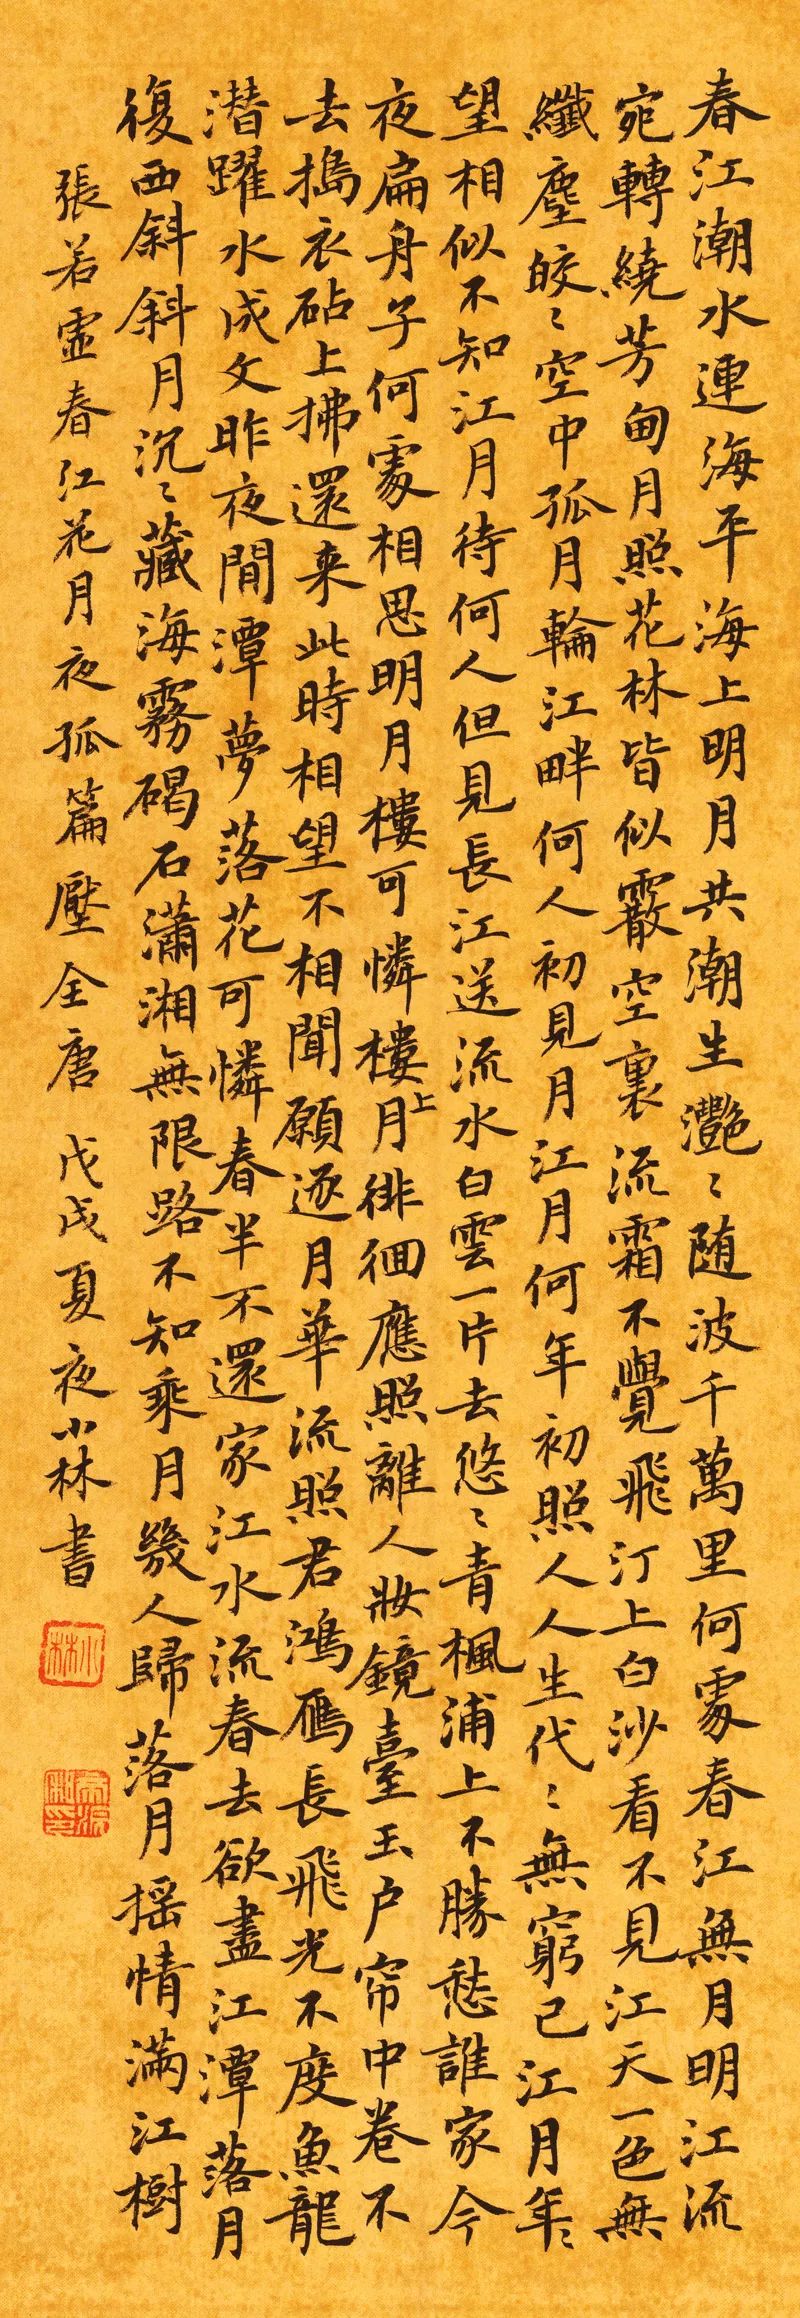 春江潮水連海平海上明月共潮生灔〻随波千萬里何處春江無月明江流
宛轉繞芳甸月照花林皆似霰空裏流霜不覺飛汀上白沙看不見江天一色無
纖塵皎〻空中孤月輪江畔何人初見月江月何年初照人人生代〻無窮已江月年〻
望相似不知江月待何人但見長江送流水白雲一片去悠〻青楓浦上不勝愁誰家今
夜扁舟子何處相思明月樓可憐樓上月徘徊應照離人妝鏡臺玉户帘中卷不
去搗衣砧上拂還来此時相望不相聞願逐月華流照君鴻鴈長飛光不度魚龍
潛躍水成文昨夜閒潭夢落花可憐春半不還家江水流春去欲盡江潭落月
復西斜斜月沉〻藏海霧碣石瀟湘無限路不知乘月幾人歸落月摇情滿江樹
張若虛春江花月夜孤篇壓全唐 戊戌夏夜小林書
小林